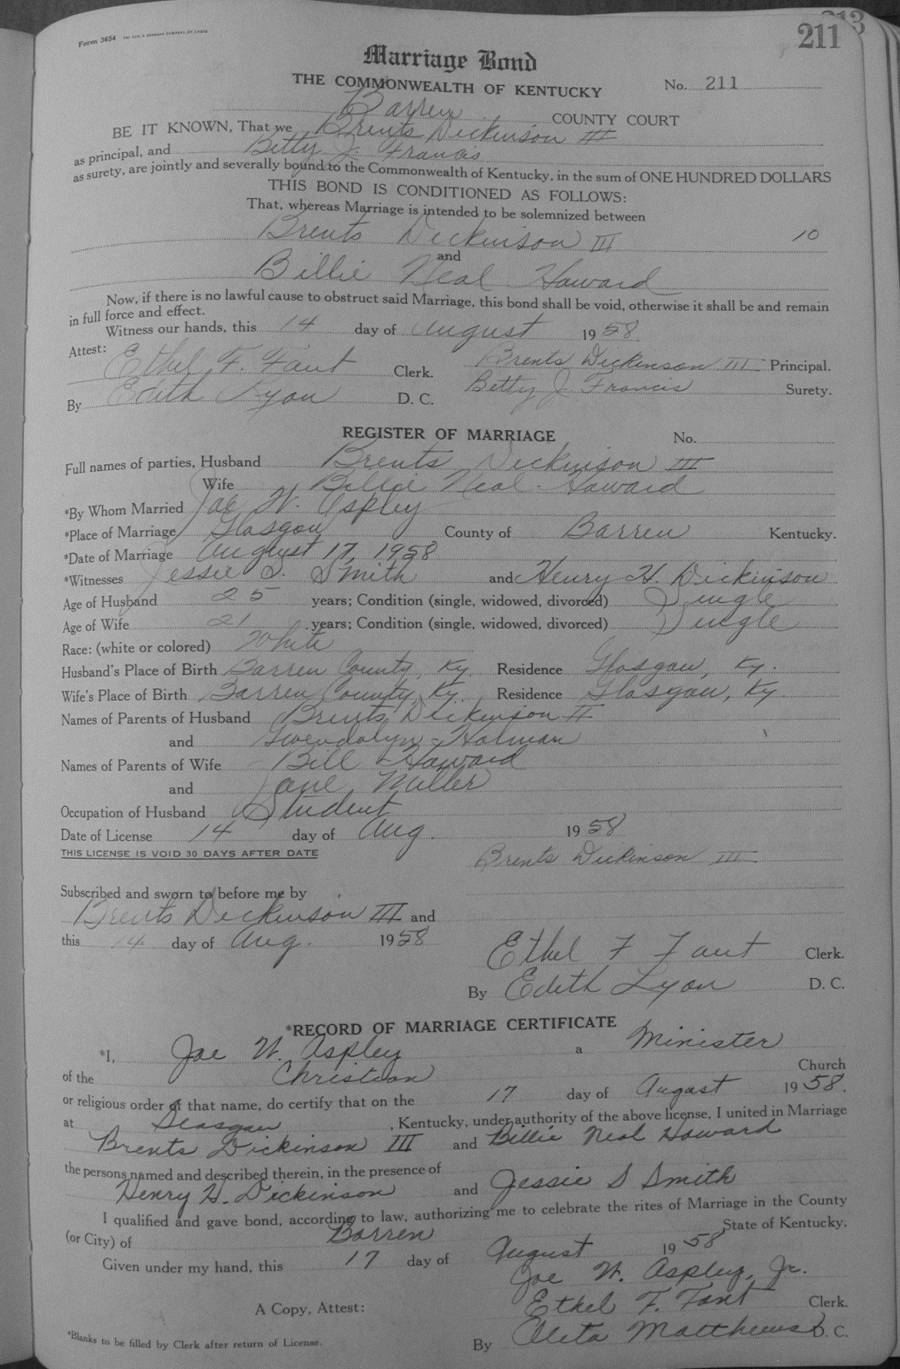 Form 3654
213
211
Marriage Bond
THE COMMONWEALTH OF KENTUCKY No. 211
Barren COUNTY COURT
BE IT KNOWN, That we Brents Dickinson III
as principal, and Betty J. Francis
as surety, are jointly and severally bound to the Commonwealth of Kentucky, in the sum of ONE HUNDRED DOLLARS
THIS BOND IS CONDITIONED AS FOLLOWS:
That, whereas Marriage is intended to be solemnized between
Brents Dickinson III 10
and
Billie Neal Howard
Now, if there is no lawful cause to obstruct said Marriage, this bond shall be void, otherwise it shall be and remain
in full force and effect.
Witness our hands, this 14 day of August 1958.
Attest:
Ethel F. Fant Clerk. Brents Dickinson III Principal.
By Edith Lyon D. C. Betty J Francis Surety.
REGISTER OF MARRIAGE No.
Full names of parties, Husband Brents Dickinson III
Wife Billie Neal Howard
*By Whom Married Joe W. Aspley
*Place of Marriage Glasgow County of Barren Kentucky.
*Date of Marriage August 17, 1958
*Witnesses Jessie S. Smith and Henry H. Dickinson
Age of Husband 25 years; Condition (single, widowed, divorced) Single
Age of Wife 21 years; Condition (single, widowed, divorced) Single
Race: (white or colored) White
Husband's Place of Birth Barren County, Ky. Residence Glasgow, Ky.
Wife's Place of Birth Barren County, Ky. Residence Glasgow, Ky
Names of Parents of Husband Brents Dickinson II
and Gwendolyn Holman
Names of Parents of Wife Bill Howard
and Jane Miller
Occupation of Husband Student
Date of License 14 day of Aug. 1958
THIS LICENSE IS VOID 30 DAYS AFTER DATE Brents Dickinson III
Subscribed and sworn to before me by
Brents Dickinson III and
this 14 day of Aug. 1958
Ethel F Fant Clerk.
By Edith Lyon D. C.
*RECORD OF MARRIAGE CERTIFICATE
*I, Joe W. Aspley a Minister
of the Christian Church
or religious order of that name, do certify that on the 17 day of August 1958.
at Glasgow, Kentucky, under authority of the above license, I united in Marriage
Brents Dickinson III and Billie Neal Howard
the persons named and described therein, in the presence of
Henry H. Dickinson and Jessie S Smith
I qualified and gave bond, according to law, authorizing me to celebrate the rites of Marriage in the County
(or City) of Barren State of Kentucky.
Given under my hand, this 17 day of August 1958
Joe W. Aspley, Jr.
A Copy, Attest: Ethel F. Fant Clerk.
*Blanks to be filled by Clerk after return of License. By Oleta Matthews D. C.